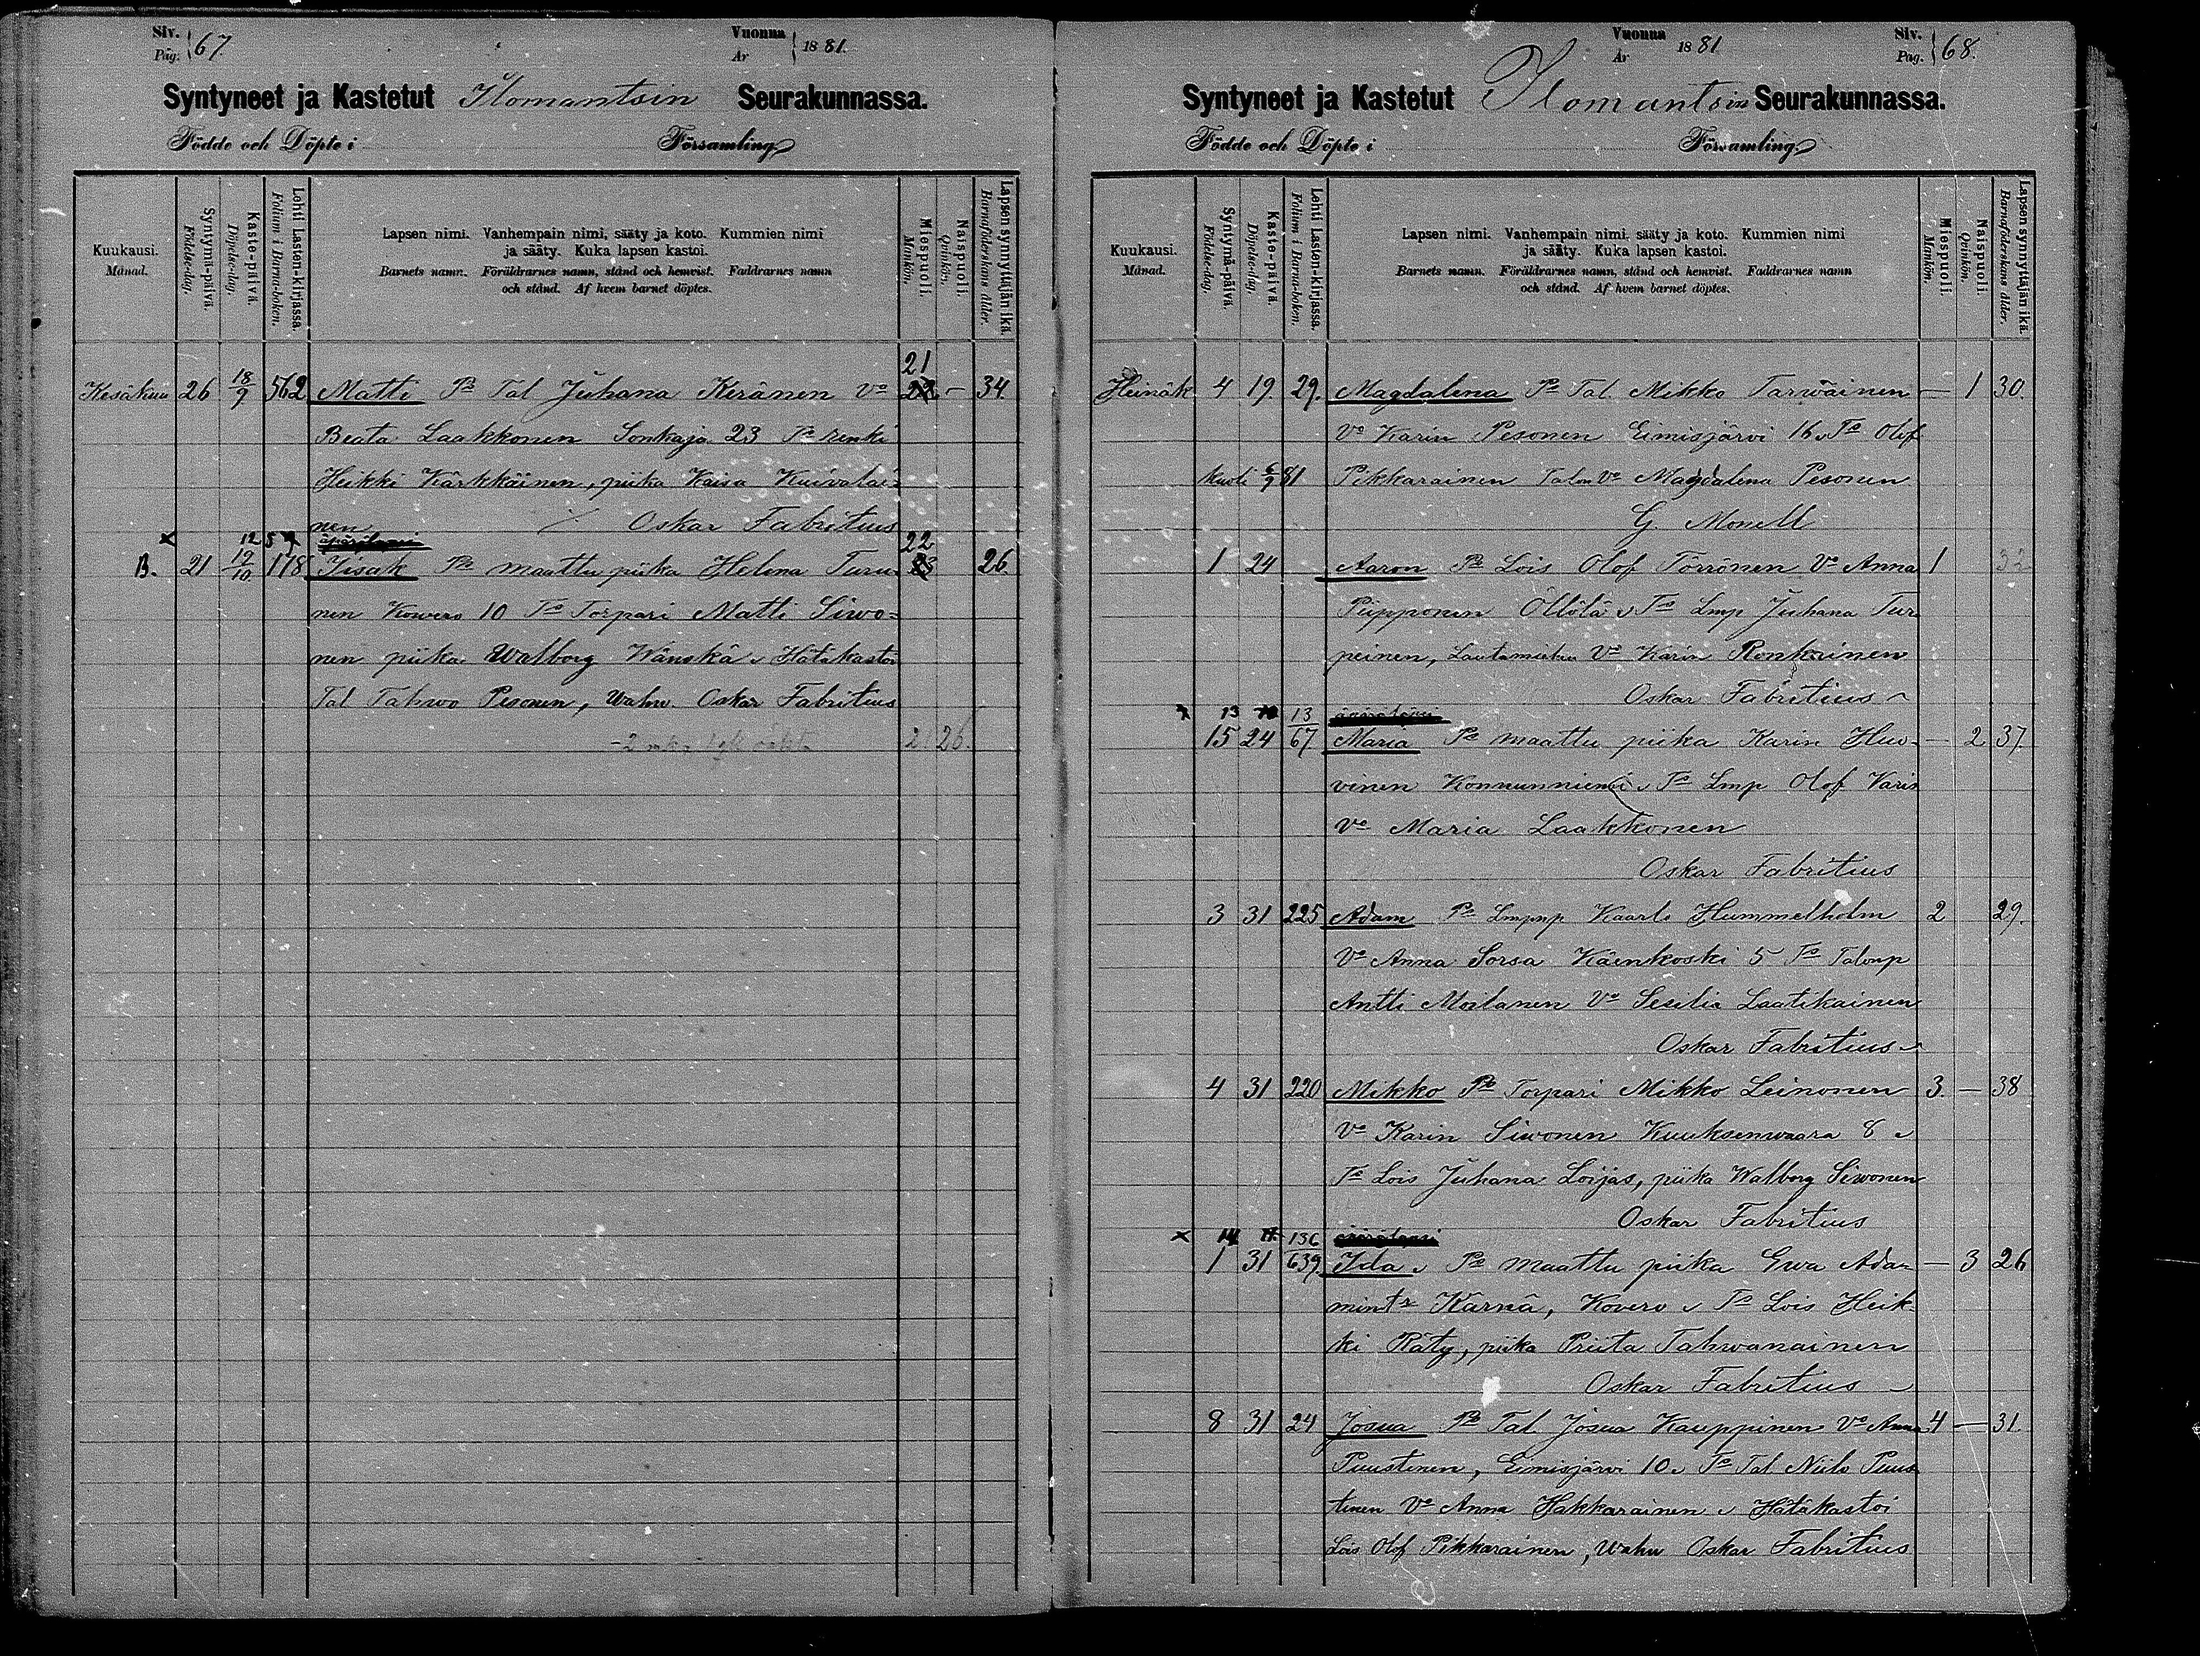 Siv. Pag. 67. Vuonna År 1881.
Syntyneet ja Kastetut Ilomantsin Seurakunnassa.
Födde och Döpte i Församling.
Kuukausi. Månad.
Syntymä-päivä. Födelse-dag.
Kaste-päivä. Döpelse-dag.
Lehti Lasten-kirjassa. Folium i Barna-boken.
Lapsen nimi. Vanhempain nimi, sääty ja koto. Kummien nimi
ja sääty. Kuka lapsen kastoi.
Barnets namn. Föräldrarnes namn, stånd och hemvist. Faddrarnes namn
och stånd. Af hvem barnet döptes.
Miespuoli. Mankön.
Naispuoli. Qvinkön.
Lapsen synnyttäjän ikä. Barnaföderskans ålder.
21
Kesäkuu 26 18/9 562 Matti Ps Tal Juhana Keränen Vo 22 - 34.
Beata Laakkonen Sonkaja 23 Ts renki
Heikki Kärkkäinen, piika Kaisa Kuivalai-
nen Oskar Fabritius
x 12 57 äpärälapsi 22
B. 21 19/10 118 Iisak Ps maattu piika Helena Turu- 23 26.
nen Kowero 10 Ts Torpari Matti Siwo-
nen piika Walborg Wänskä Hätäkastoi
Tal Tahwo Pesonen, Wahw. Oskar Fabritius
21 26.
Siv. Pag. 68. Vuonna År 1881
Syntyneet ja Kastetut Ilomantsin Seurakunnassa.
Födde och Döpte i Församling.
Kuukausi. Månad.
Syntymä-päivä. Födelse-dag.
Kaste-päivä. Döpelse-dag.
Lehti Lasten-kirjassa. Folium i Barna-boken.
Lapsen nimi. Vanhempain nimi, sääty ja koto. Kummien nimi
ja sääty. Kuka lapsen kastoi.
Barnets namn. Föräldrarnes namn, stånd och hemvist. Faddrarnes namn
och stånd. Af hvem barnet döptes.
Miespuoli. Mankön.
Naispuoli. Qvinkön.
Lapsen synnyttäjän ikä. Barnaföderskans ålder.
Heinäk 4 19. 29. Magdalena Ps Tal. Mikko Tarwainen — 1 30.
Vo Karin Pesonen Eimisjärvi 16 Ts Olof
kuoli 6/9 81 Pikkarainen Talon Vo Magdalena Pesonen
G. Monell
1 24 Aaron Ps Lois Olof Törrönen Vo Anna 1 32
Piipponen Öllölä Ts Lmp Juhana Tur
peinen, Lautamiehen Vo Karin Ronkainen
Oskar Fabritius
x 13 13 äpärälapsi
15 24 67 Maria Ps maattu piika Karin Huo- — 2 37.
vinen Konnunniemi Ts Lmp Olof Varis
Vo Maria Laakkonen
Oskar Fabritius
3 31 225 Adam Ps Lmpnp Kaarlo Hummelholm 2 29.
Vo Anna Sorsa Käenkoski 5 Ts Talonp
Antti Moilanen Vo Sesilia Laatikainen
Oskar Fabritius
4 31 220 Mikko Ps Torpari Mikko Leinonen 3. — 38
Vo Karin Siwonen Kuuksenwaara 8
Ts Lois Juhana Loijas, piika Walborg Siwonen
Oskar Fabritius
x 14 136 äpärälapsi
1 31 639. Ida Ps maattu piika Ewa Ada- — 3 26
mintr Kärnä, Kovero Ts Lois Heik-
ki Räty, piika Priita Tahwanainen
Oskar Fabritius
8 31 24 Josua Ps Tal. Josua Kauppinen Vo Anna 4 — 31.
Puustinen, Eimisjärvi 10 Ts Tal Niilo Puus
tinen Vo Anna Hakkarainen Hätäkastoi
Lois Olof Pikkarainen, Wahw Oskar Fabritius